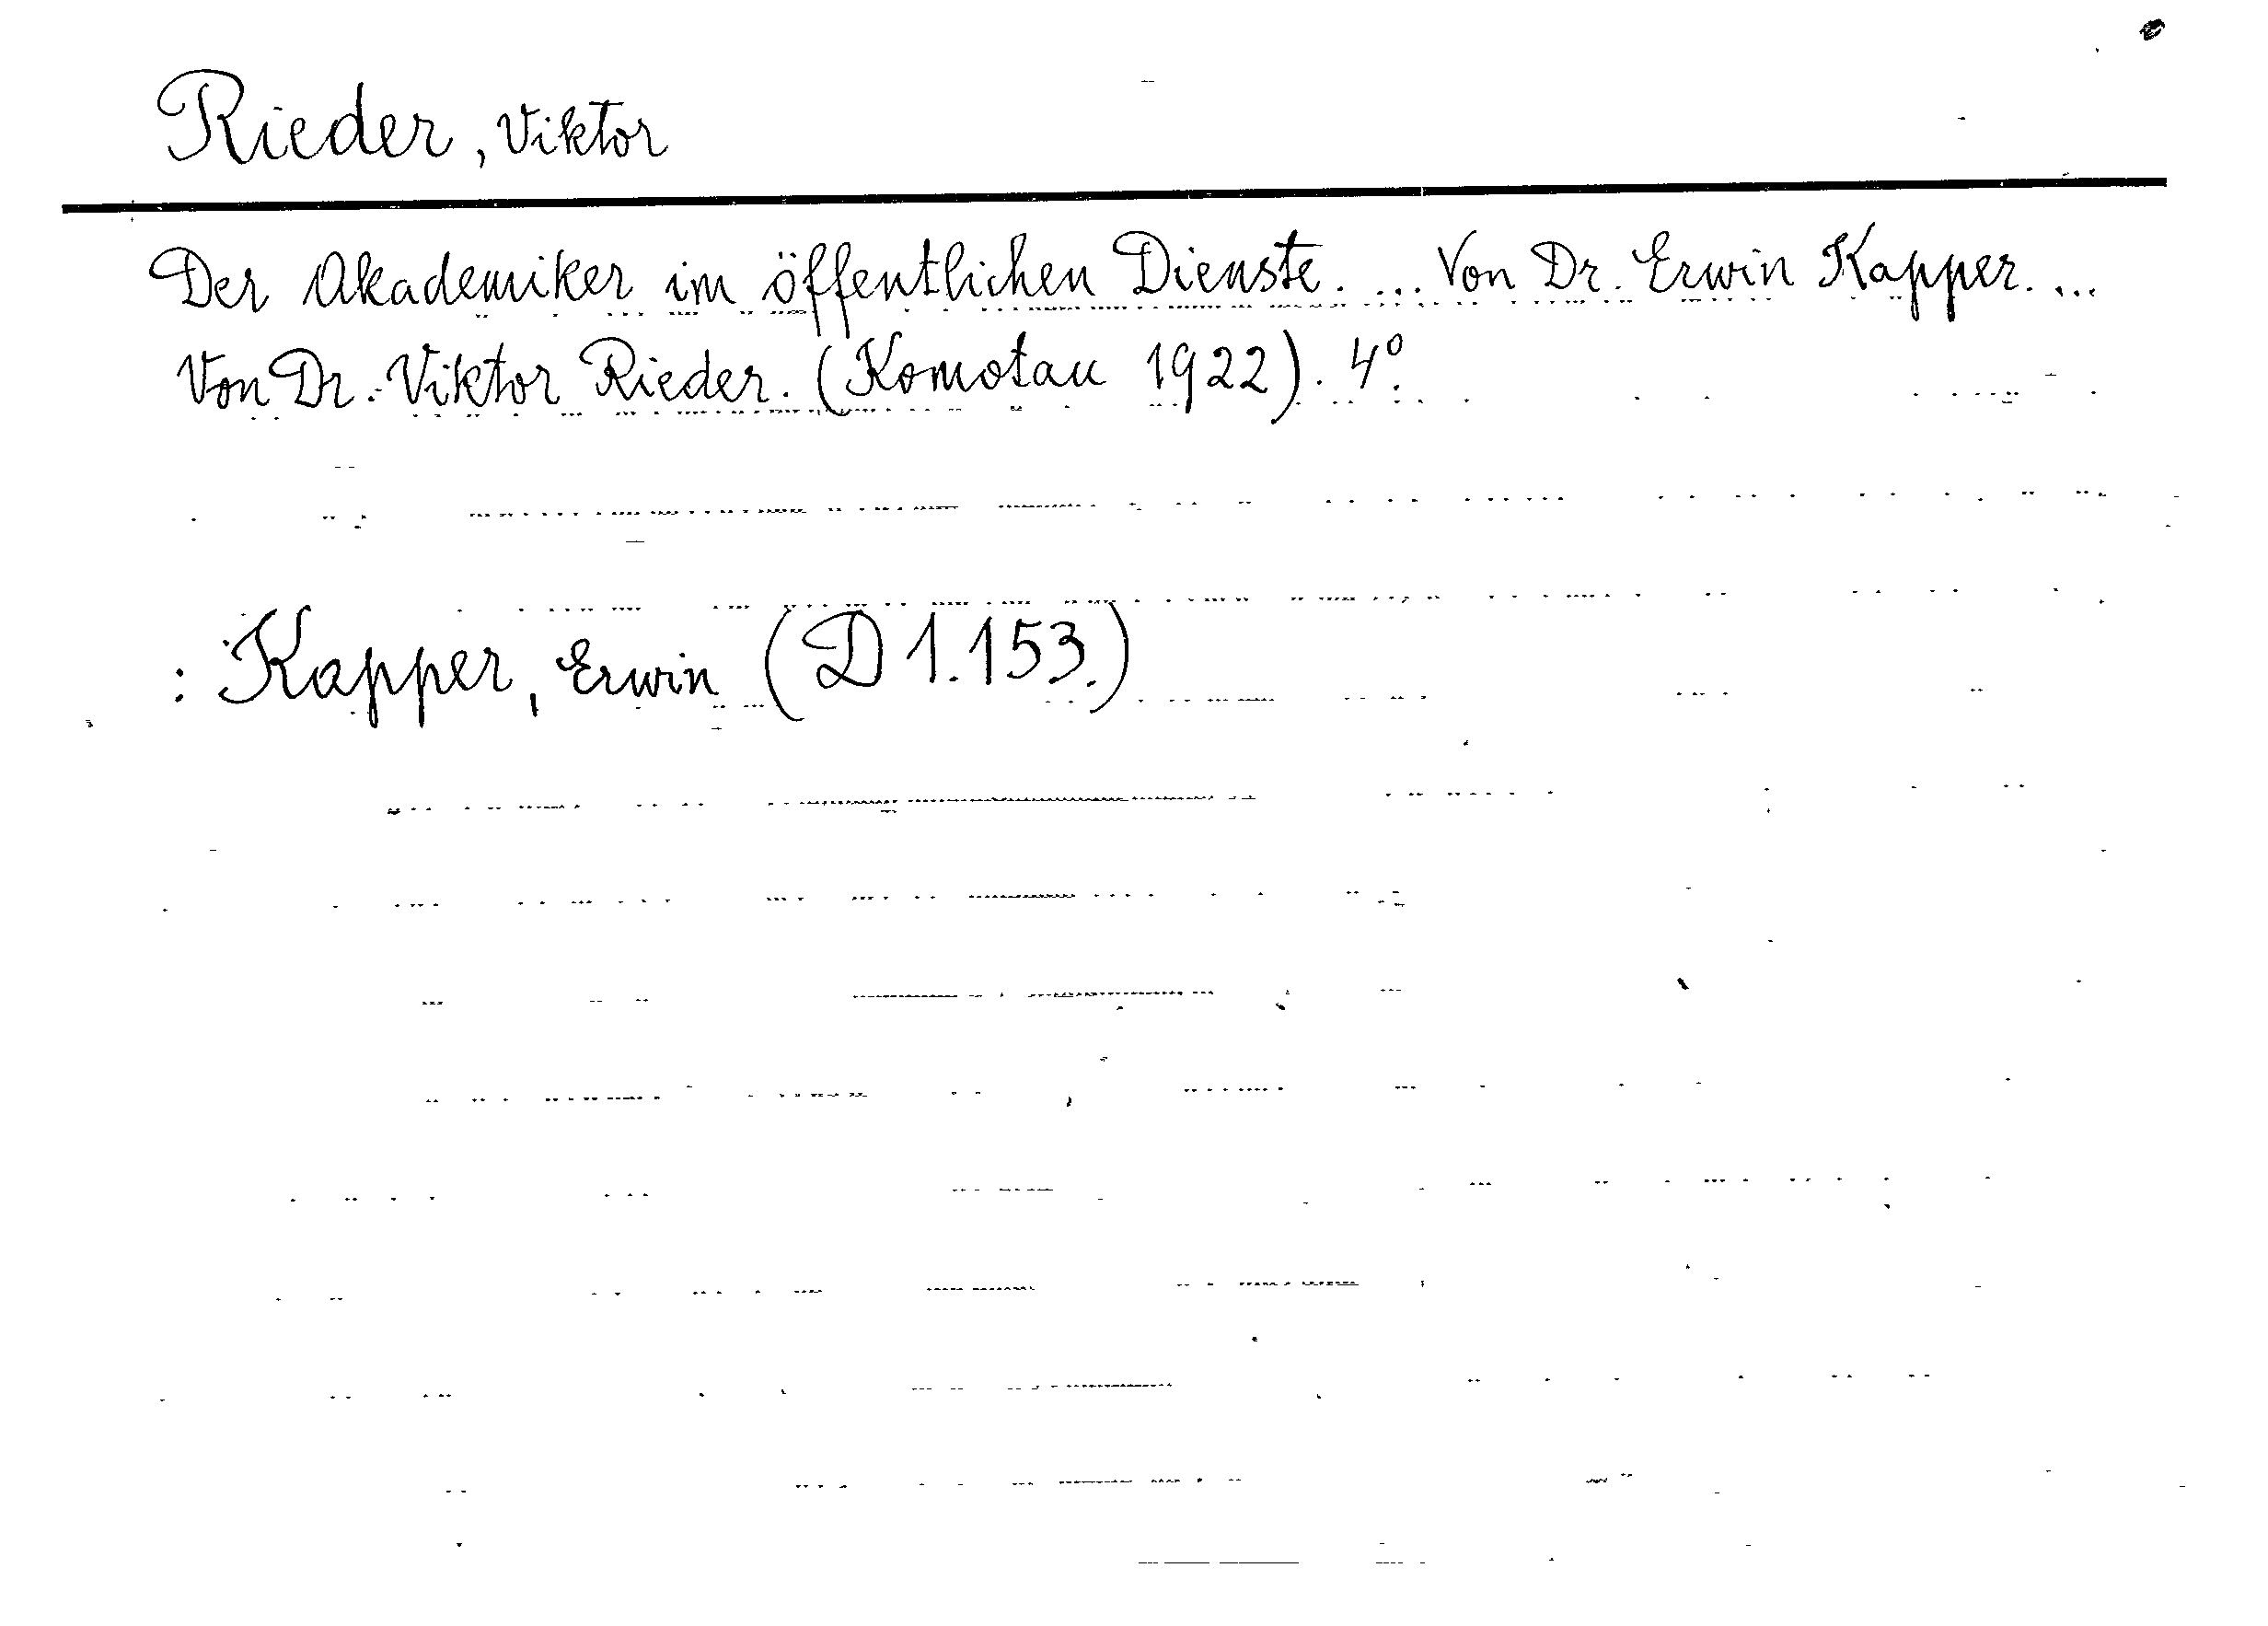 Rieder, Viktor
Der Akademiker im öffentlichen Dienste. ... Von Dr. Erwin Kapper. ...
Von Dr. Viktor Rieder. (Komotau 1922). 4°.
: Kapper, Erwin (D 1.153.)